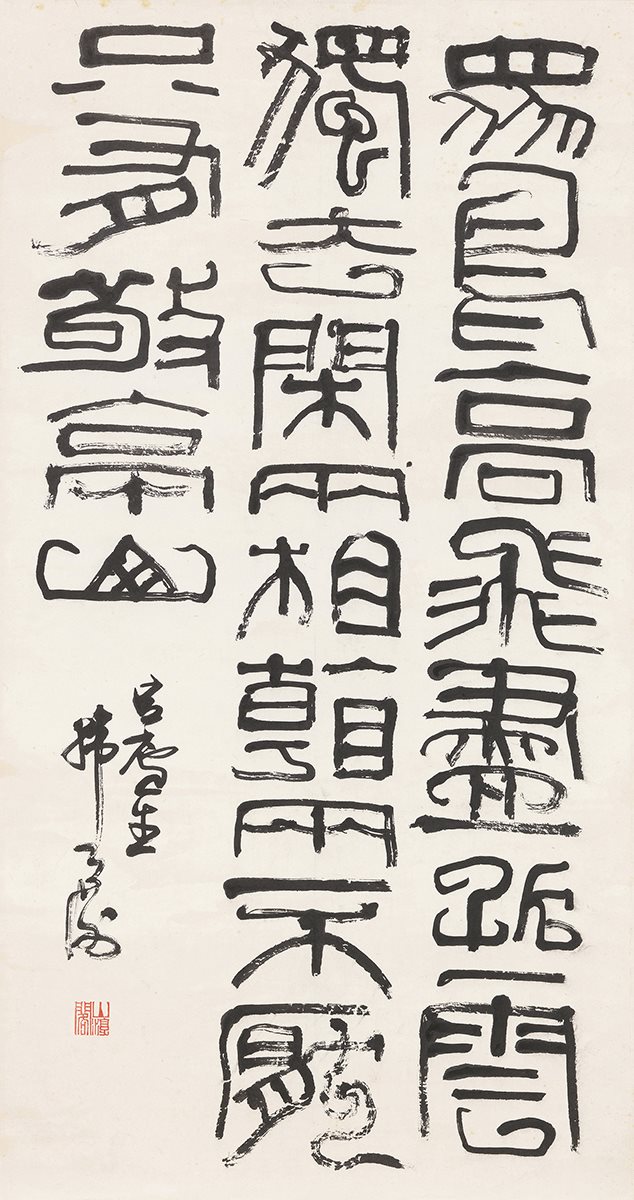 眾鳥高飛盡孤雲
獨去閑兩相看兩不厭
只有敬亭山